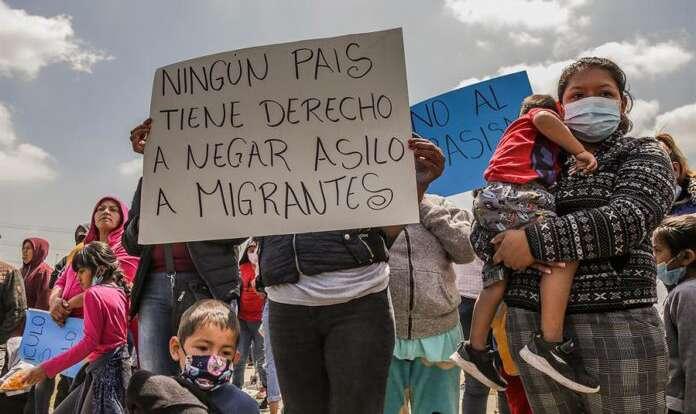 NINGÚN PAIS
TIENE DERECHO
A NEGAR ASILO
A MIGRANTES
NO AL